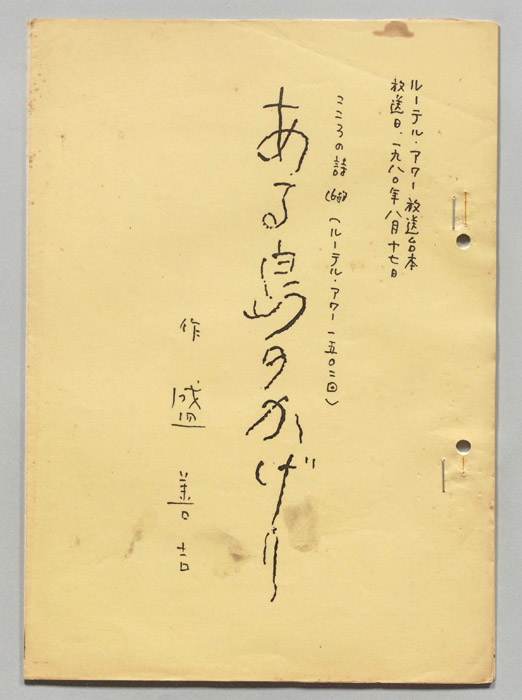 ルーテル・アワー放送台本
放送日、一九八〇年八月十七日
こころの詩 (ルーテル・アワー一五〇二回)
ある島のかげり
作 盛 善吉